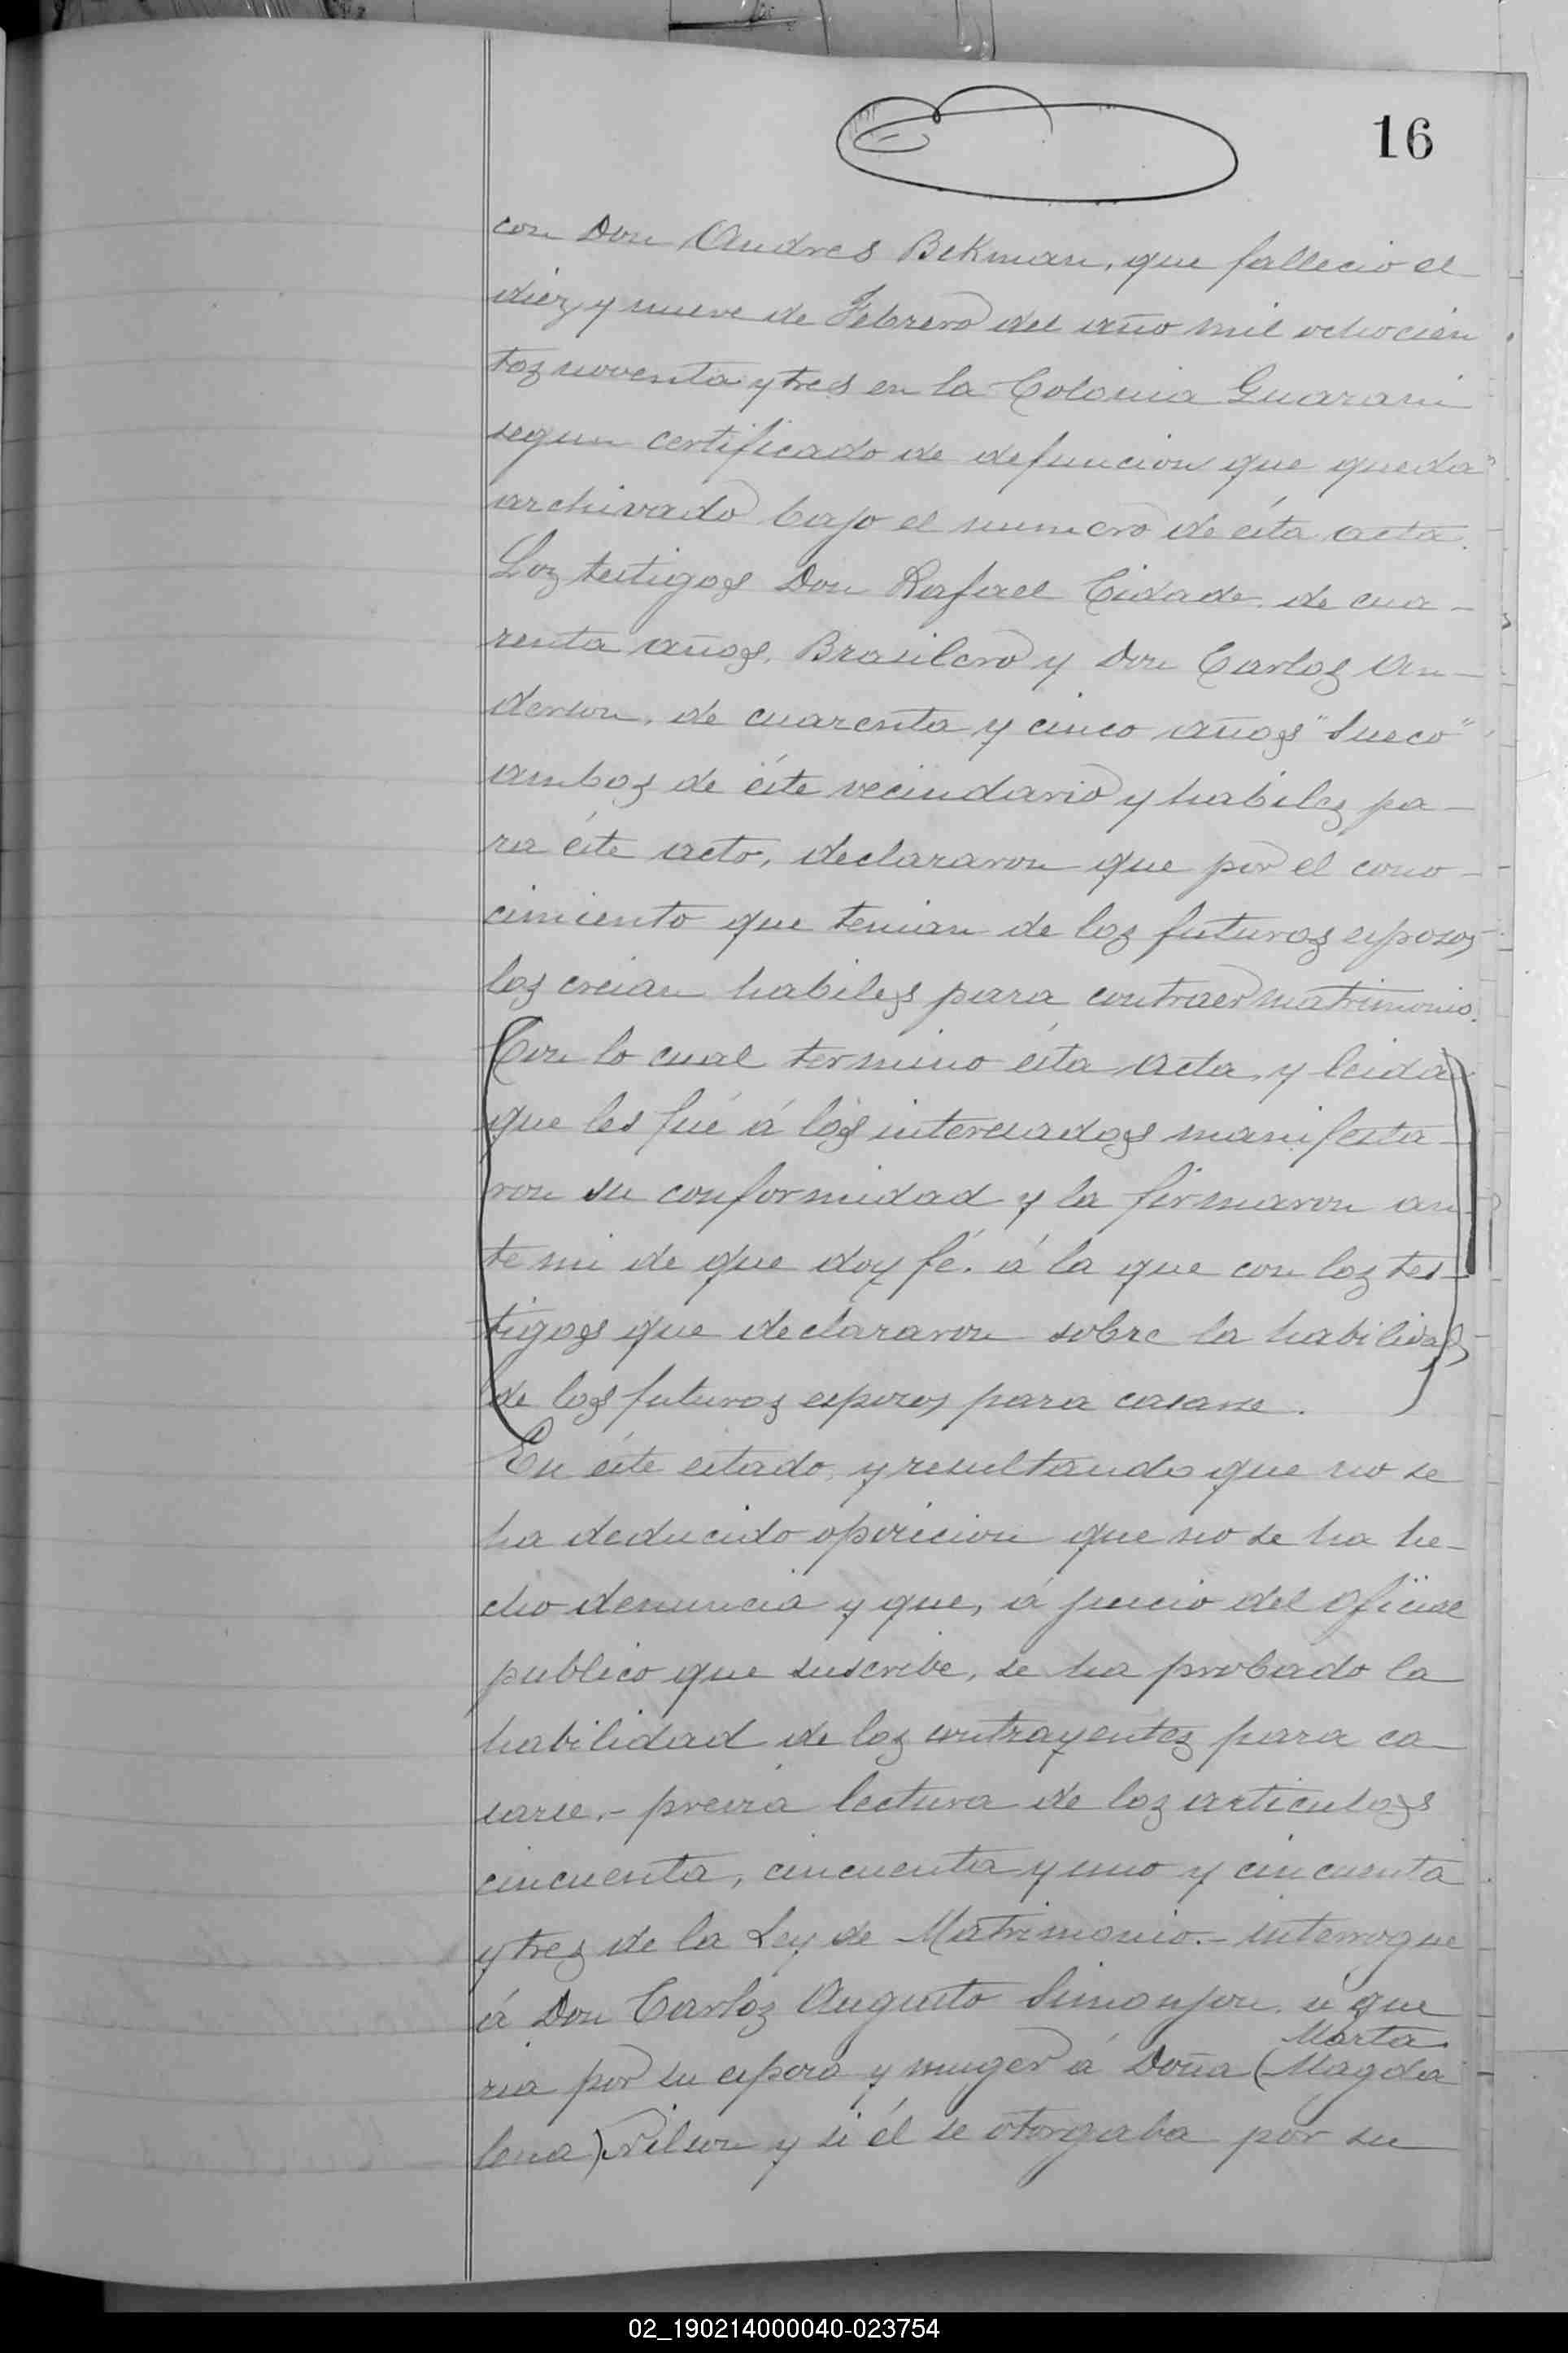 16
con Don Andres Bekman, que fallecio el
diez y nueve de Febrero del año mil ochocien
tos noventa y tres en la Colonia Guarani
segun certificado de defuncion que queda
archivado bajo el numero de ésta acta.
Los testigos Don Rafael Cidade de cua-
renta años, Brasilero y Don Carlos An-
derson, de cuarenta y cinco años "Sueco"
ambos de éste vecindario y habiles pa-
ra éste acto, declararon que por el cono-
cimiento que tenian de los futuros esposos
los creian habiles para contraer matrimonio.
(Con lo cual termino ésta Acta, y leida
que les fué á los interesados manifesta-
ron su conformidad y la firmaron an-
te mi de que doy fé. á la que con los tes-
tigos que declararon sobre la habilidad
de los futuros esposos para casarse.)
En éste estado, y resultando que no se
ha deducido oposicion que no se ha he-
cho denuncia y que, á juicio del Oficial
publico que suscribe, se ha probado la
habilidad de los contrayentes para ca-
sarse.- previa lectura de los articulos
cincuenta, cincuenta y uno y cincuenta
y tres de la Ley de Matrimonio.- interrogue
á Don Carlos Augusto Simonson. si que
Marta
ria por su esposa y muger á Doña (Magda
lena) Nilson y si él se otorgaba por su
02_190214000040-023754